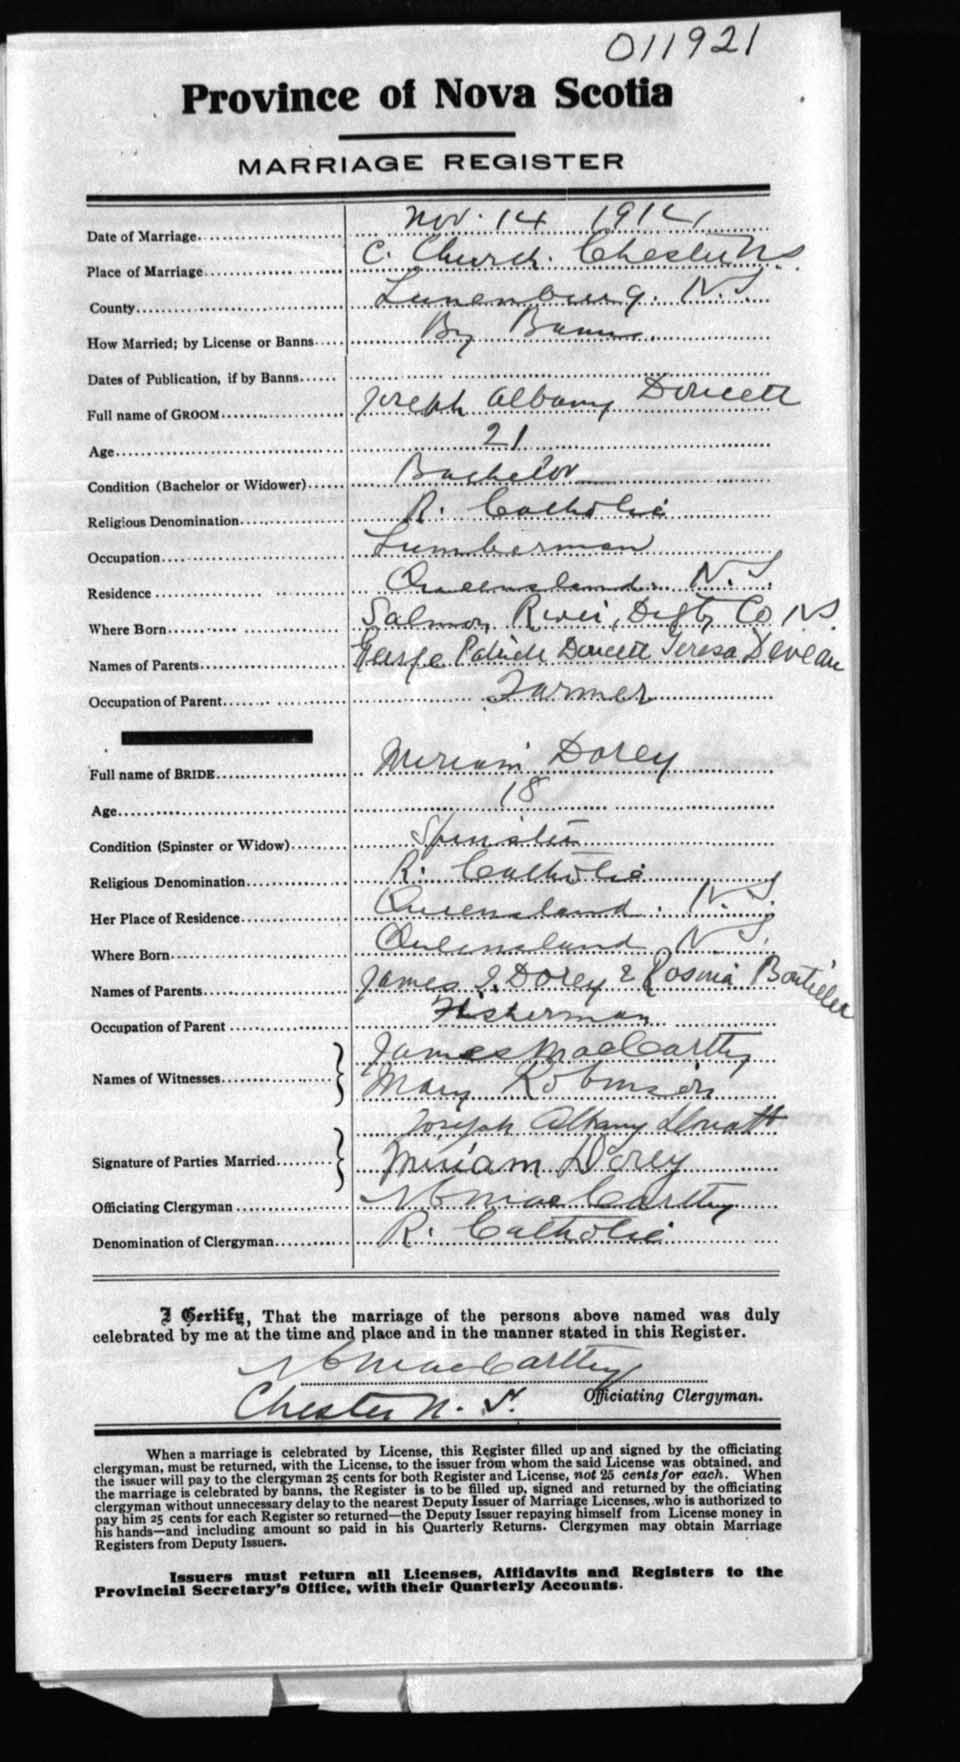 011921
Province of Nova Scotia
MARRIAGE REGISTER
Date of Marriage Nov. 14 1914
Place of Marriage C. Church. Chester NS
County Lunenburg. N.S.
How Married; by License or Banns By Banns.
Dates of Publication, if by Banns
Full name of GROOM Joseph Albany Doucett
Age 21
Condition (Bachelor or Widower) Bachelor
Religious Denomination R. Catholic
Occupation Lumberman
Residence Queensland. N.S.
Where Born Salmon River, Digby Co NS
Names of Parents George Patrick Doucett Teresa Deveau
Occupation of Parent Farmer
Full name of BRIDE Miriam Dorey
Age 18
Condition (Spinster or Widow) Spinster
Religious Denomination R. Catholic
Her Place of Residence Queensland. N.S.
Where Born Queensland N.S.
Names of Parents James I. Dorey & Rosina Boutilier
Occupation of Parent Fisherman
Names of Witnesses James MacCarthy
Mary Robinson
Signature of Parties Married Joseph Albany
Miriam Dorey
Officiating Clergyman MacCarthy
Denomination of Clergyman R. Catholic
I Certify, That the marriage of the persons above named was duly
celebrated by me at the time and place and in the manner stated in this Register.
MacCarthy
Chester N.S. Officiating Clergyman.
When a marriage is celebrated by License, this Register filled up and signed by the officiating
clergyman, must be returned, with the License, to the issuer from whom the said License was obtained, and
the issuer will pay to the clergyman 25 cents for both Register and License, not 25 cents for each. When
the marriage is celebrated by banns, the Register is to be filled up, signed and returned by the officiating
clergyman without unnecessary delay to the nearest Deputy Issuer of Marriage Licenses, who is authorized to
pay him 25 cents for each Register so returned—the Deputy Issuer repaying himself from License money in
his hands—and including amount so paid in his Quarterly Returns. Clergymen may obtain Marriage
Registers from Deputy Issuers.
Issuers must return all Licenses, Affidavits and Registers to the
Provincial Secretary's Office, with their Quarterly Accounts.